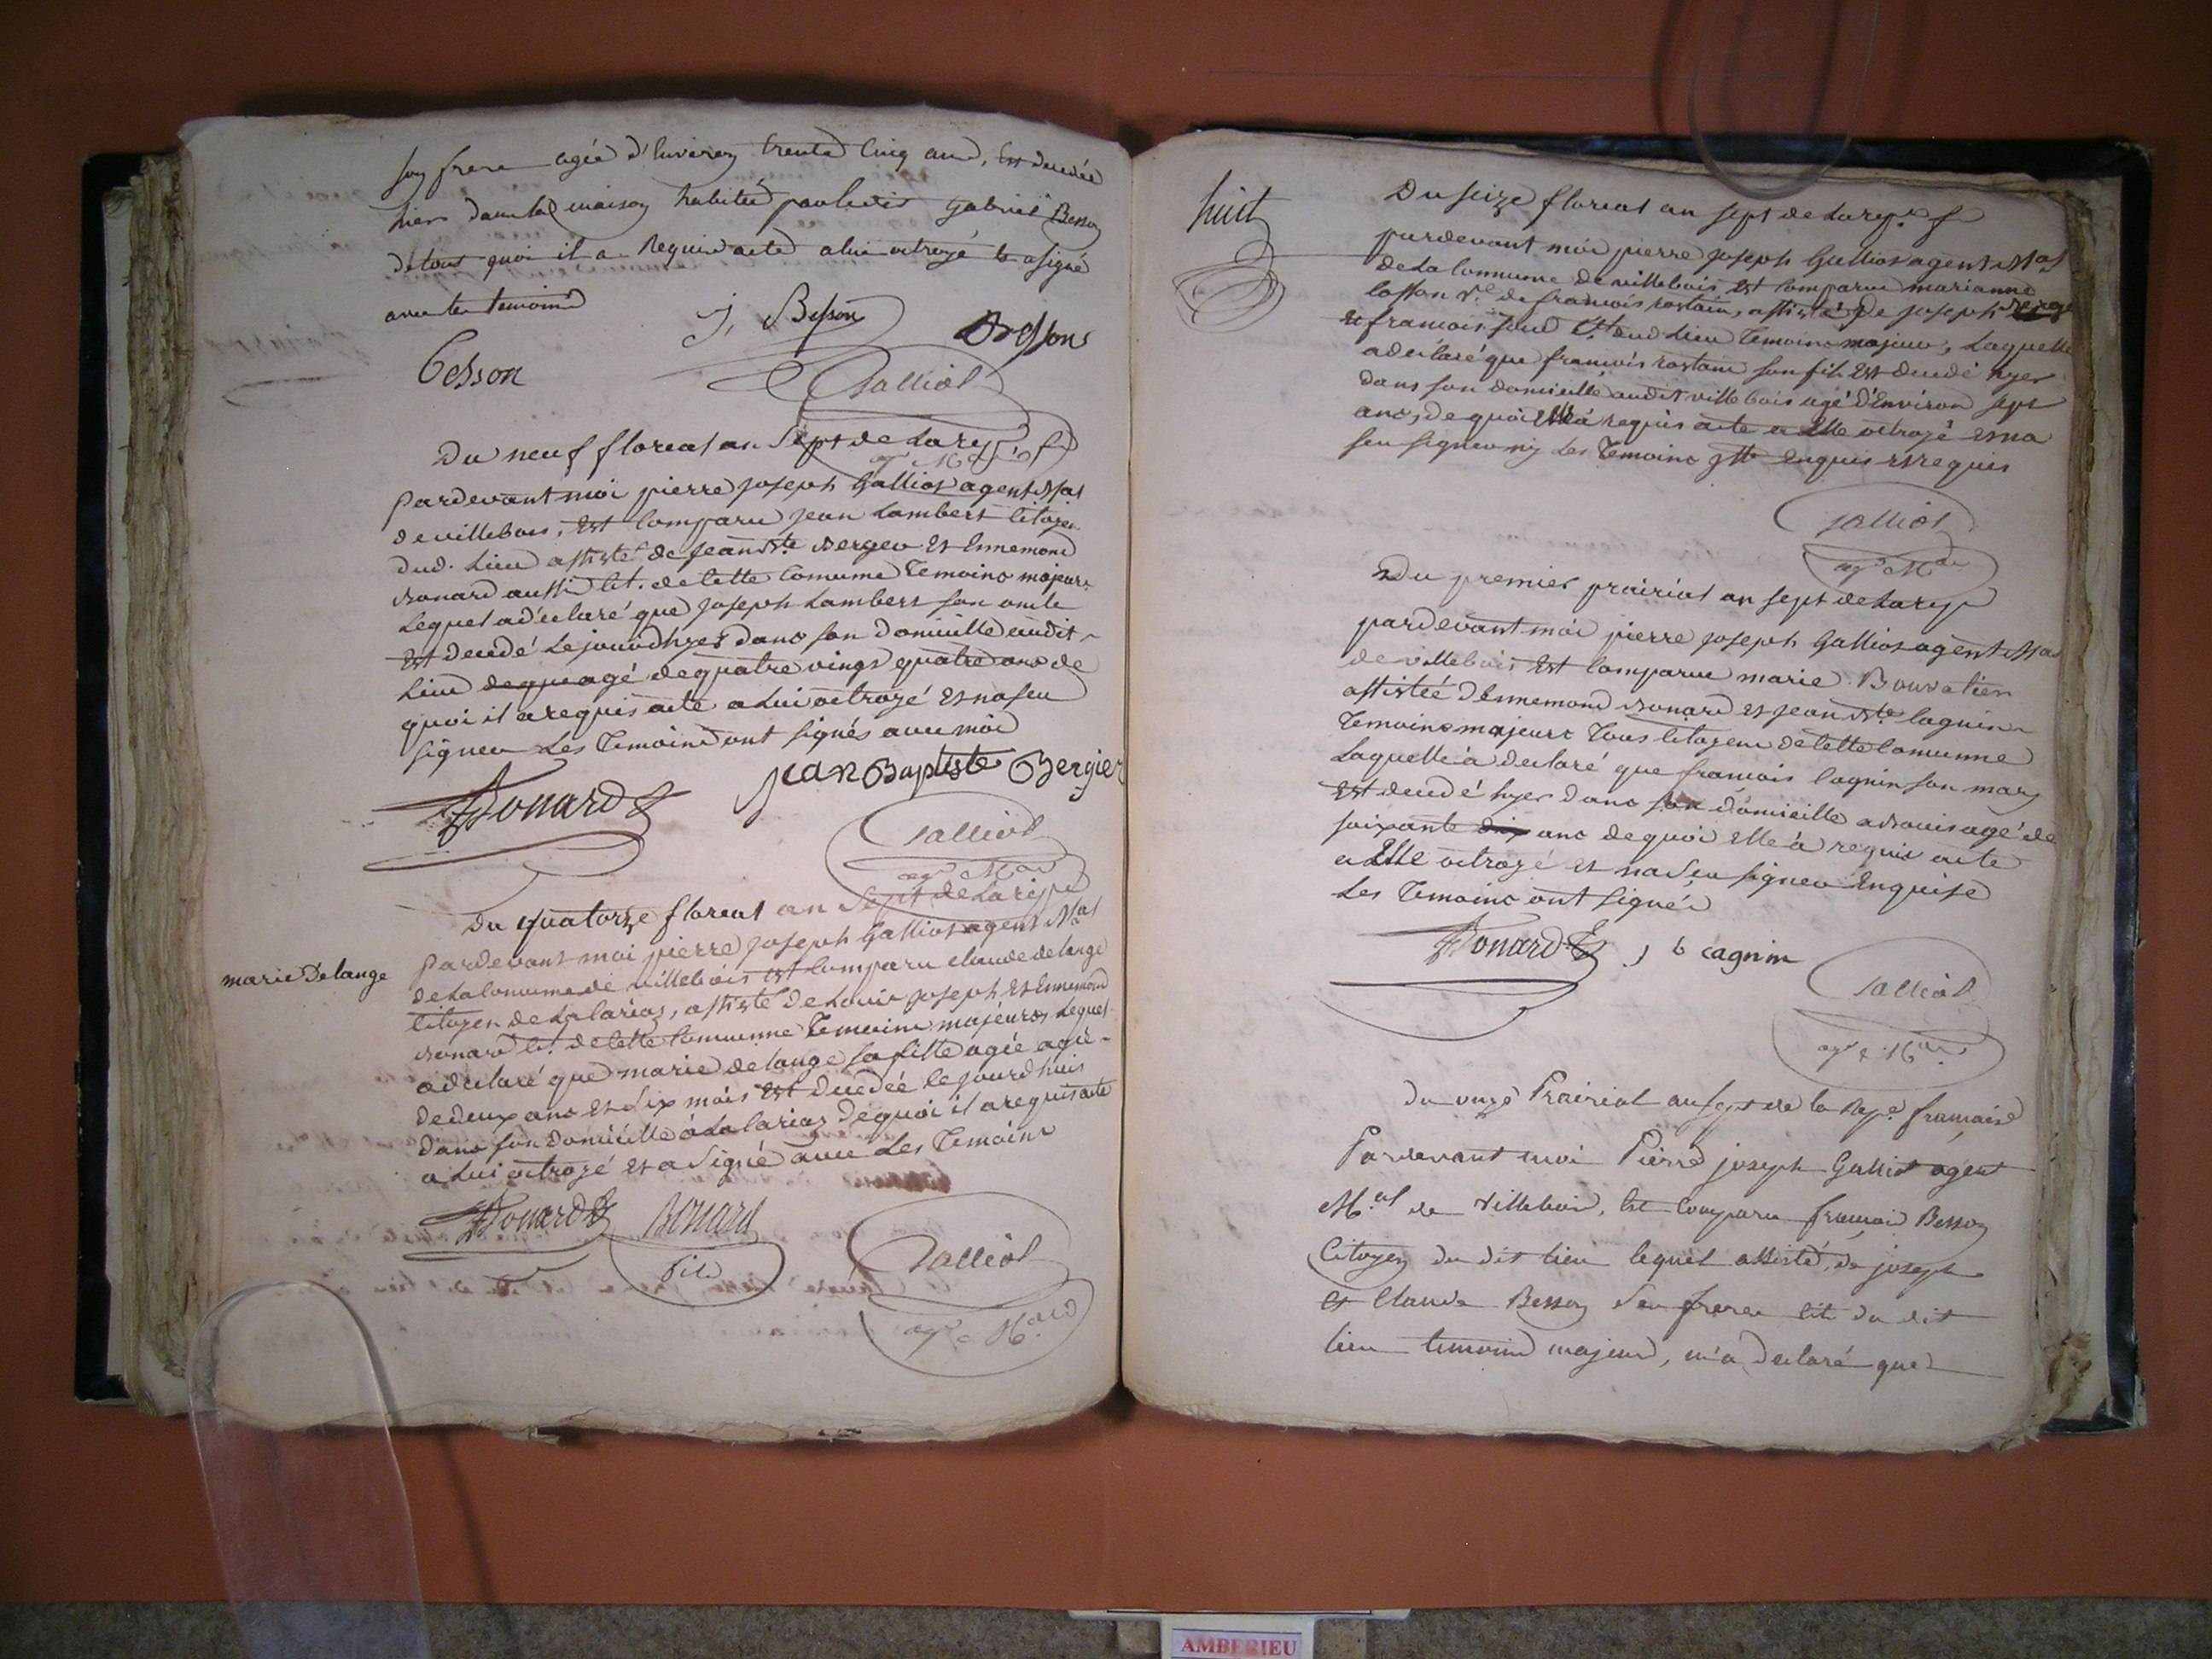 son frere agée d'Environ trente Cinq ans, Est decedée
hier dans la maison habitée par ledit Gabriel Besson
de tout quoi il a Requis acte a lui octroyé & a signé
avec les temoins
J. Besson
Besson
Besson
Galliot
agt Mal
Du neuf floreal an Sept de La rep. f.
Pardevant moi pierre joseph Galliot agent Mal
de villebois, Est Comparu jean Lambert Citoyen
dud. Lieu assisté de jean Bte Berger Et Ennemond
Bonard aussi Cit. de Cette Comune Temoins majeurs
Lequel a déclaré que joseph Lambert son oncle
Est decedé Le jour d'hyer dans son Domicille audit
Lieu agé de quatre vings quatre ans de
quoi il a requis acte a Lui octroyé Et na seu
signer Les Temoins ont signés avec moi
Bonard
jean Baptiste Bergier
Galliot
agt Mal
Du quatorze floreal an Sept de La rep
marie Delange
Pardevant moi pierre joseph Galliot agent Mal
de La Comune de villebois Est Comparu claude delange
Citoyen de Lalarias, assisté de Louis joseph Et Ennemond
Bonard Ct. de Cette Commune Temoins majeurs Lequel
a déclaré que marie delange sa fille agée agée
de deux ans Et dix mois Est Decedée Ce jourd'huis
dans son domicille à Lalarias De quoi il a requis acte
a Lui octroyé Et a Signé avec Les Temoins
Bonard
Bonard
fils
Galliot
agt Mal
huit
Du seize floreal an sept de La repe f
pardevant moi pierre joseph Galliot agent Mal
de La Commune de villebois Est Comparue marianne
Ve de francois rostain, assistée de joseph
Et francois Ct dud Lieu Temoins majeurs, Laquelle
a déclaré que francois rostain son fils Est decedé hyer
dans son domicille audit villebois agé d'Environ sept
ans, de quoi Elle à requis acte a Elle octroyé Et na
seu signer ny Les Temoins Enquis Et requis
Galliot
agt Mal
Du premier prairial an sept de La rep
pardevant moi pierre joseph Galliot agent Mal
de villebois Est Comparue marie Bouvatier
assistée d'Ennemond Bonard Et jean Bte Cagnin
Temoins majeurs Tous Citoyens de Cette Comunne
Laquelle à declaré que francois Cagnin son mary
Est decedé hyer dans son domicille a Bouis agé de
soixante ans de quoi Elle à requis acte
a Elle octroyé Et na Seu signer Enquise
Les Temoins ont signés
Bonard
j b cagnin
Galliot
agt Mal
du onze Prairial an sept de la Repe francaise
Pardevant moi Pierre joseph Galliot agent
Mal de Villebois, Est Comparu francois Besson
Citoyen du dit lieu lequel assisté de joseph
et Claude Besson Ses freres cit du dit
lieu temoins majeurs, m'a declaré que
AMBERIEU